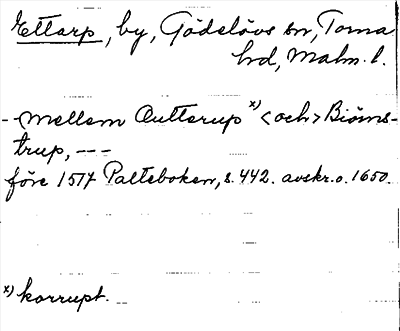 Ettarp, by, Gödelövs sn, Torna
hd, Malm. l.
- - mellem Outterup x) <och> Biörns-
trup, - - -
före 1517 Palteboken, s. 442. avskr. o. 1650.
x) korrupt.